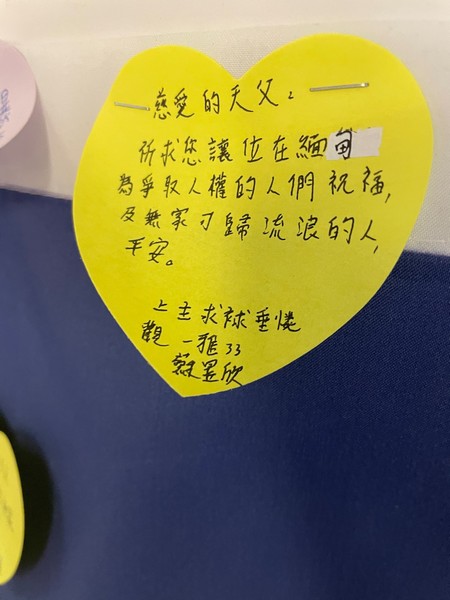 慈愛的天父：
祈求您讓位在緬甸
為爭取人權的人們祝福，
及無家可歸流浪的人，
平安。
上主求祢垂憐
觀一 33
昱欣